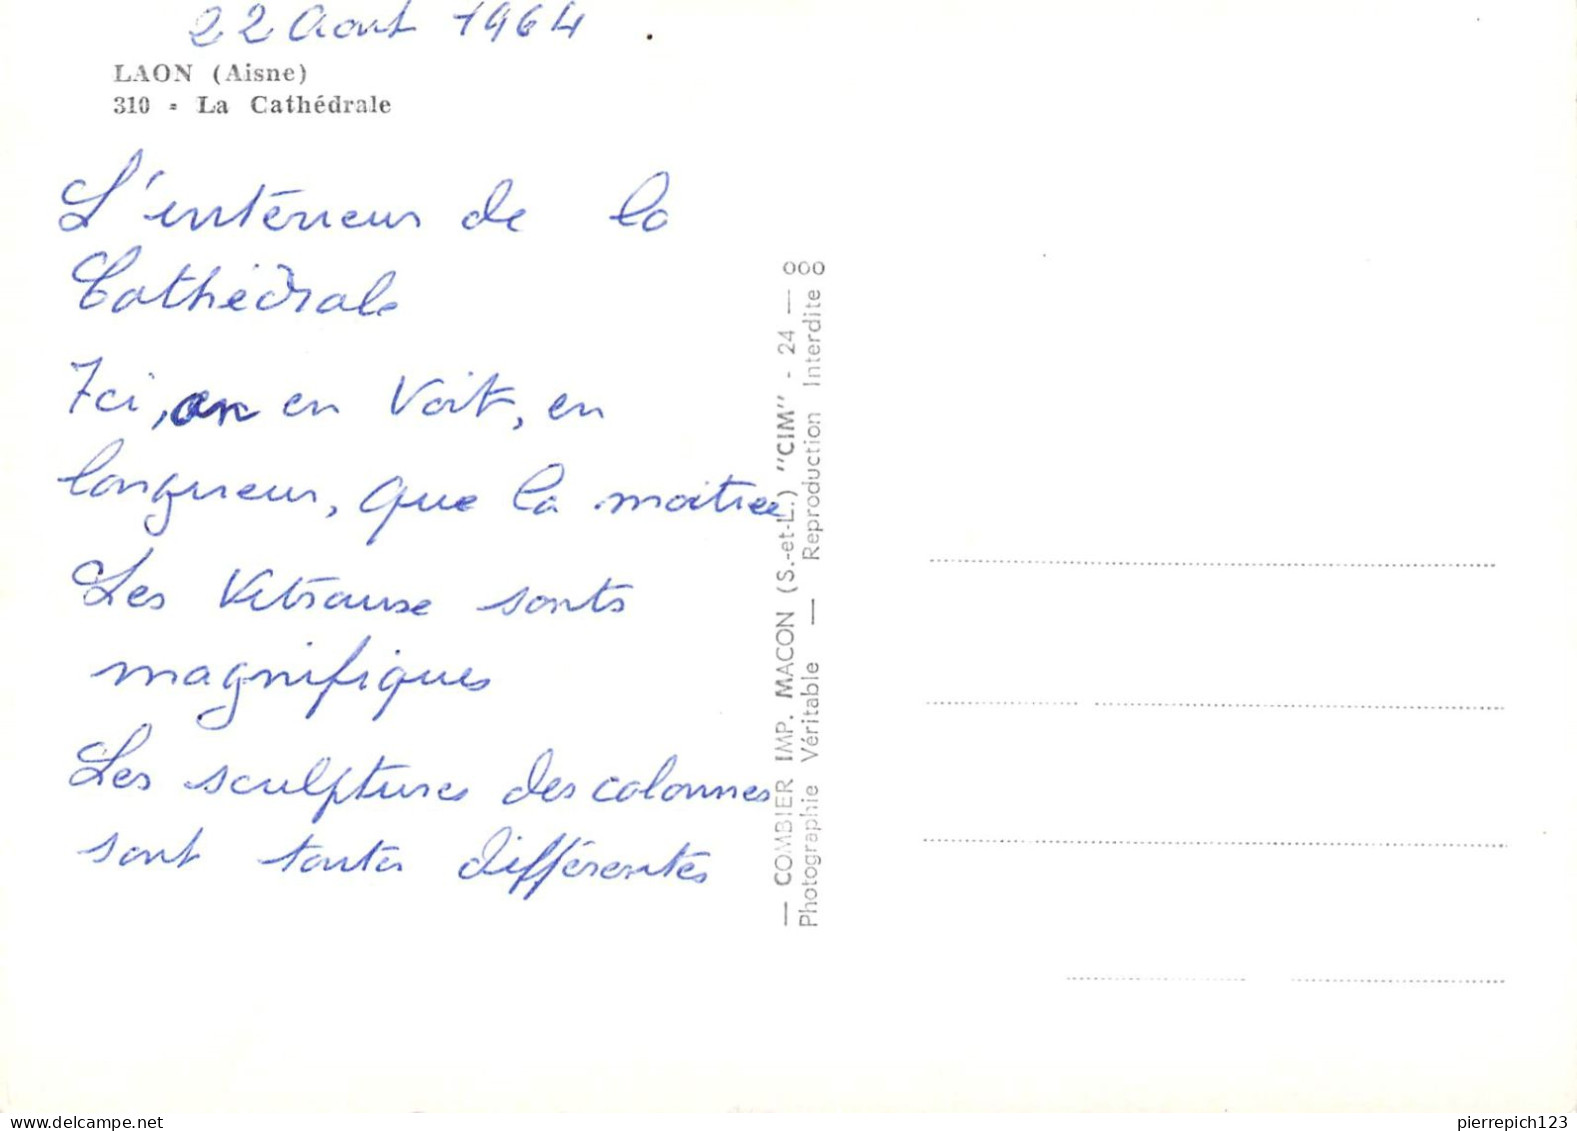 22 Aout 1964
LAON (Aisne)
310 - La Cathédrale
L'intérieur de la
Cathédrale
Ici, on en voit, en
longueur, que la moitiee
Les Vitraux sonts
magnifiques
Les sculptures des colonnes
sont toutes différentes
— COMBIER IMP. MACON (S.-et-L.) "CIM" - 24 — 000
Photographie Véritable — Reproduction Interdite 0
pierrepich123